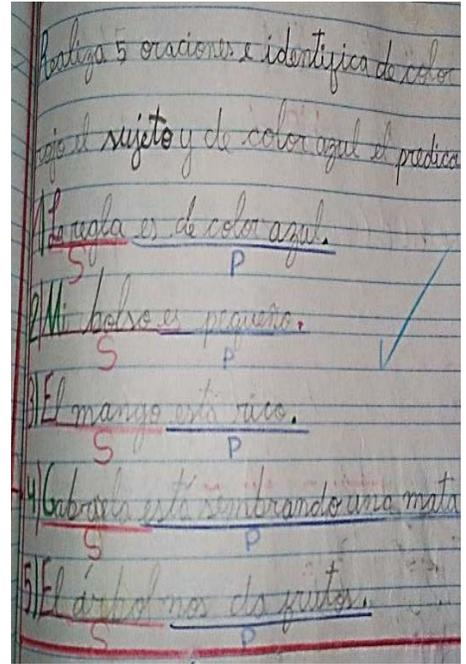 Realiza 5 oraciones e identifica de color
rojo el sujeto y de color azul el predica
1) La regla es de color azul.
S P
2) Mi bolso es pequeño.
S P
3) El mango está rico.
S P
4) Gabriela está sembrando una mata
S P
5) El árbol nos da frutos.
S P